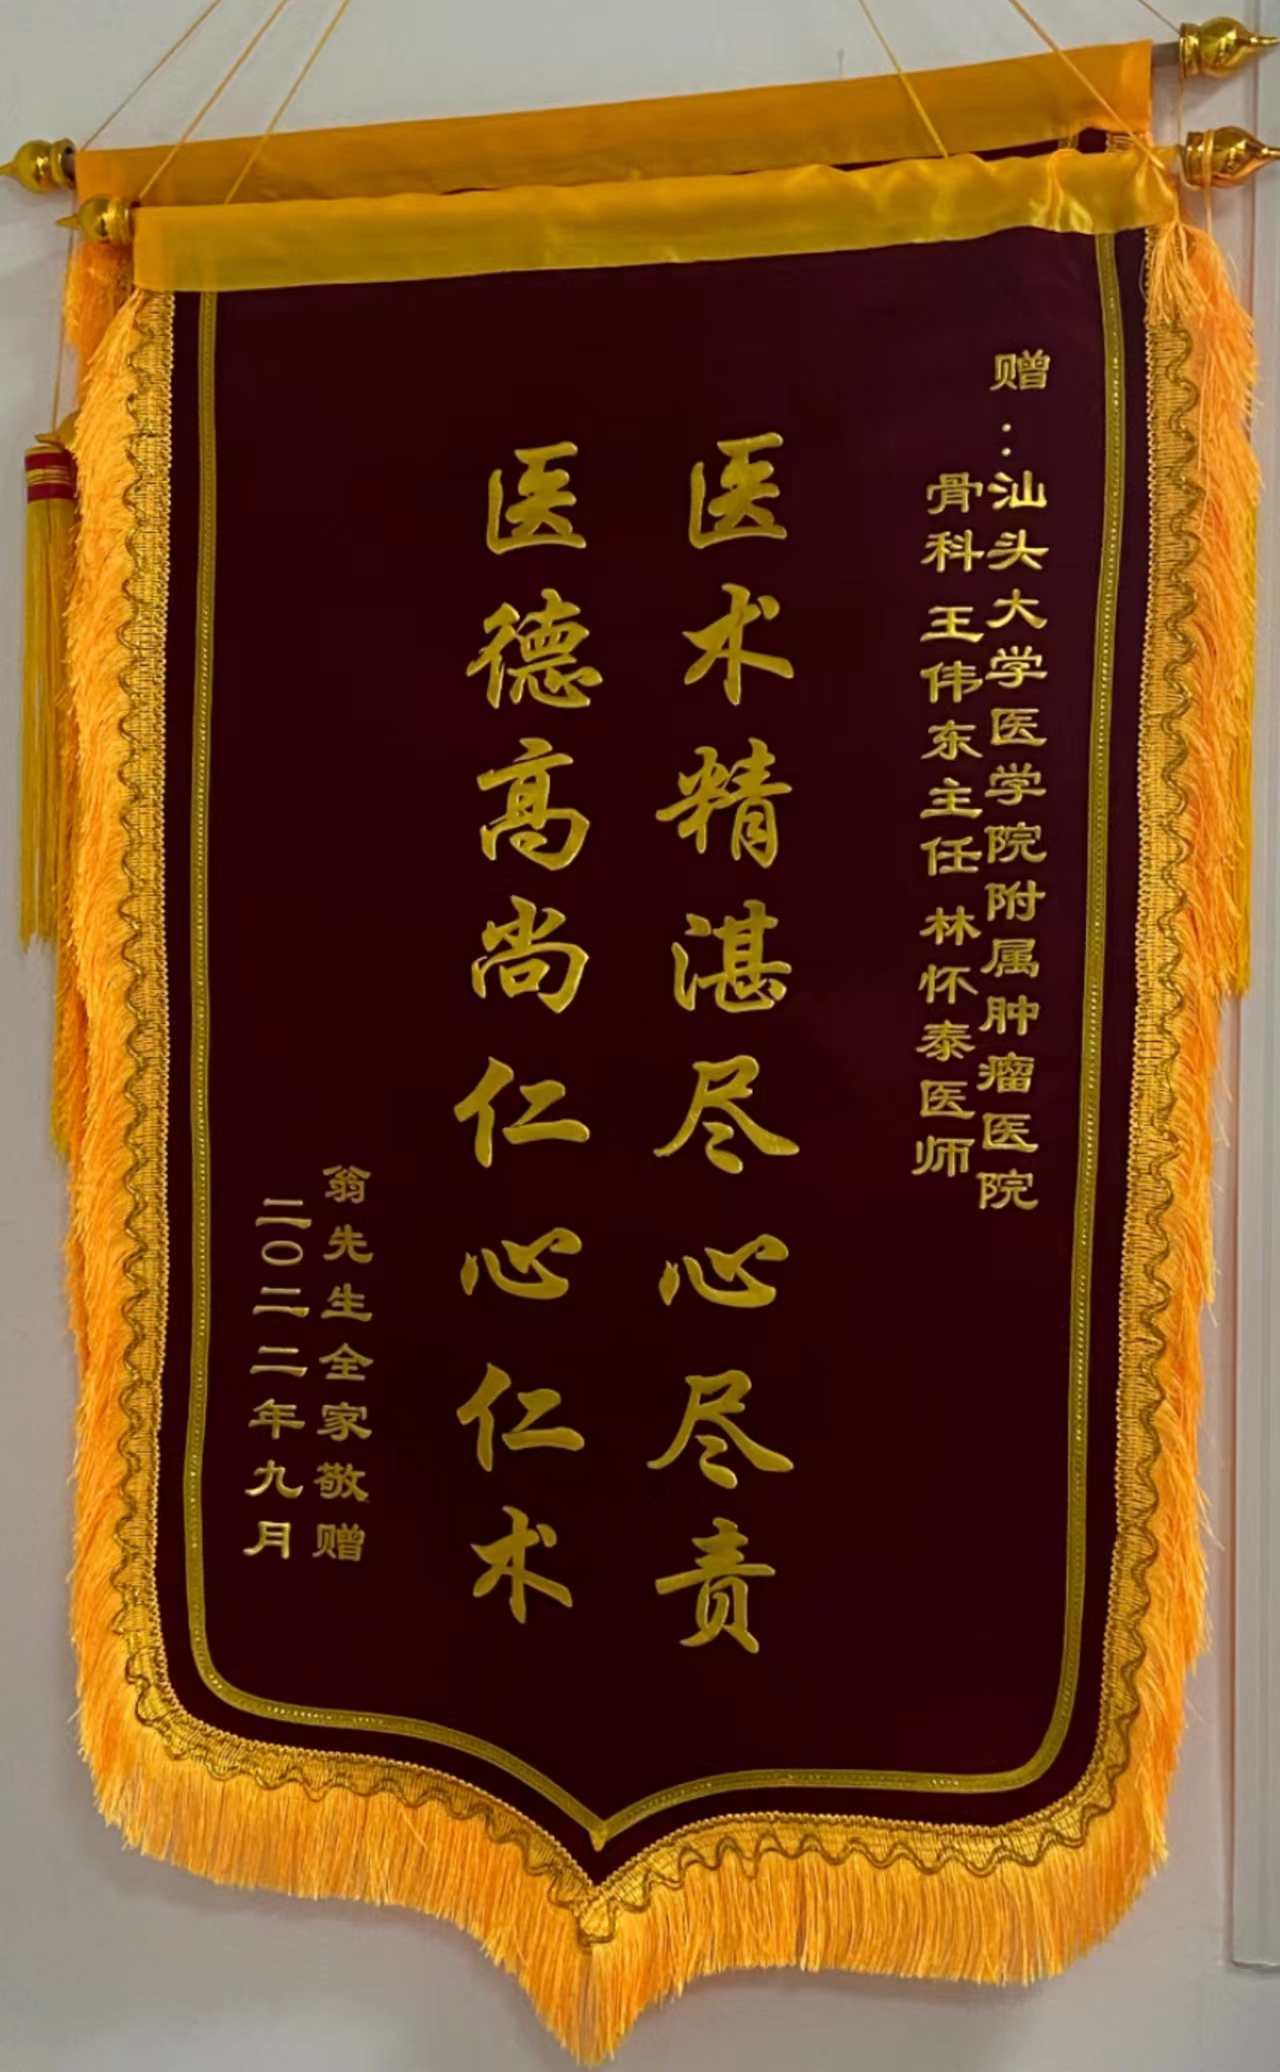 赠：汕头大学医学院附属肿瘤医院
骨科 王伟东主任 林怀泰医师
医术精湛尽心尽责
医德高尚仁心仁术
翁先生全家敬赠
二〇二二年九月